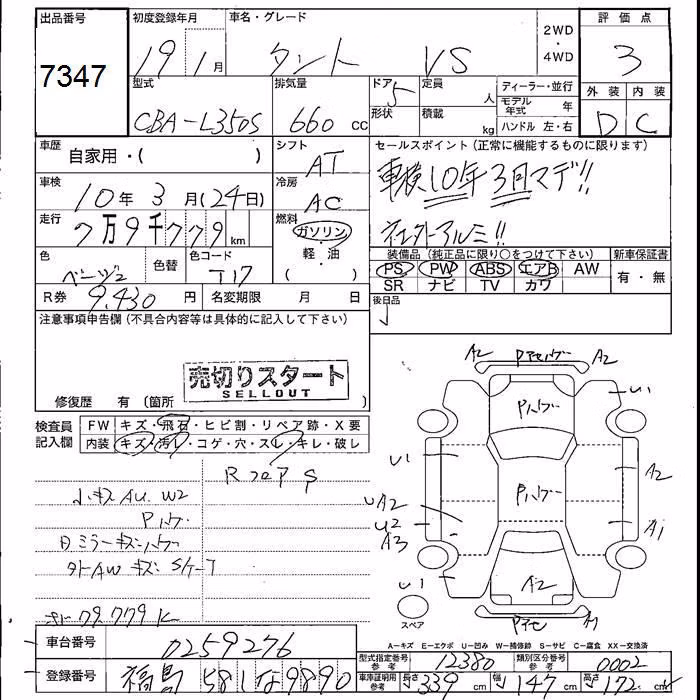 出品番号 初度登録年月 車名・グレード 2WD・4WD 評価点
7347 19年1月 タント VS 3
型式 排気量 ドア 定員 ディーラー・並行 外装 内装
CBA-L350S 660cc 5 人 モデル年式 年 D C
形状 積載 kg ハンドル 左・右
車歴 自家用・( ) シフト AT セールスポイント(正常に機能するものに限ります)
車検 10年3月(24日) 冷房 AC 車検10年3月マデ!!
走行 7万9千779km 燃料 ガソリン 社外アルミ!!
軽・油
( )
色 ベージュ 色替 色コード T17 装備品(純正品に限り○をつけて下さい) 新車保証書
PS PW ABS エアB AW 有・無
SR ナビ TV カワ
R券 9,430円 名変期限 月 日 後日品
注意事項申告欄(不具合内容等は具体的に記入して下さい)
売切りスタート
SELLOUT
修復歴 有 (箇所 )
検査員記入欄 FW キズ・飛石・ヒビ割・リペア跡・X要
内装 キズ・汚レ・コゲ・穴・スレ・キレ・破レ
小キズ AU W2
Pハゲ
日ミラーキズハゲ
外AWキズ
79,779K
A2 A2
Pハゲ U1
U1 A2
Pハゲ
UA2
U2 A1
A3
U1 A2
A1
スペア
A-キズ E-エクボ U-凹み W-補修跡 S-サビ C-腐食 XX-交換済
車台番号 0259276
型式指定番号 参考 12380 類別区分番号 参考 0002
登録番号 福島 581 な 9890
車庫証明用 参考 長さ 339cm 幅 147cm 高さ 172cm